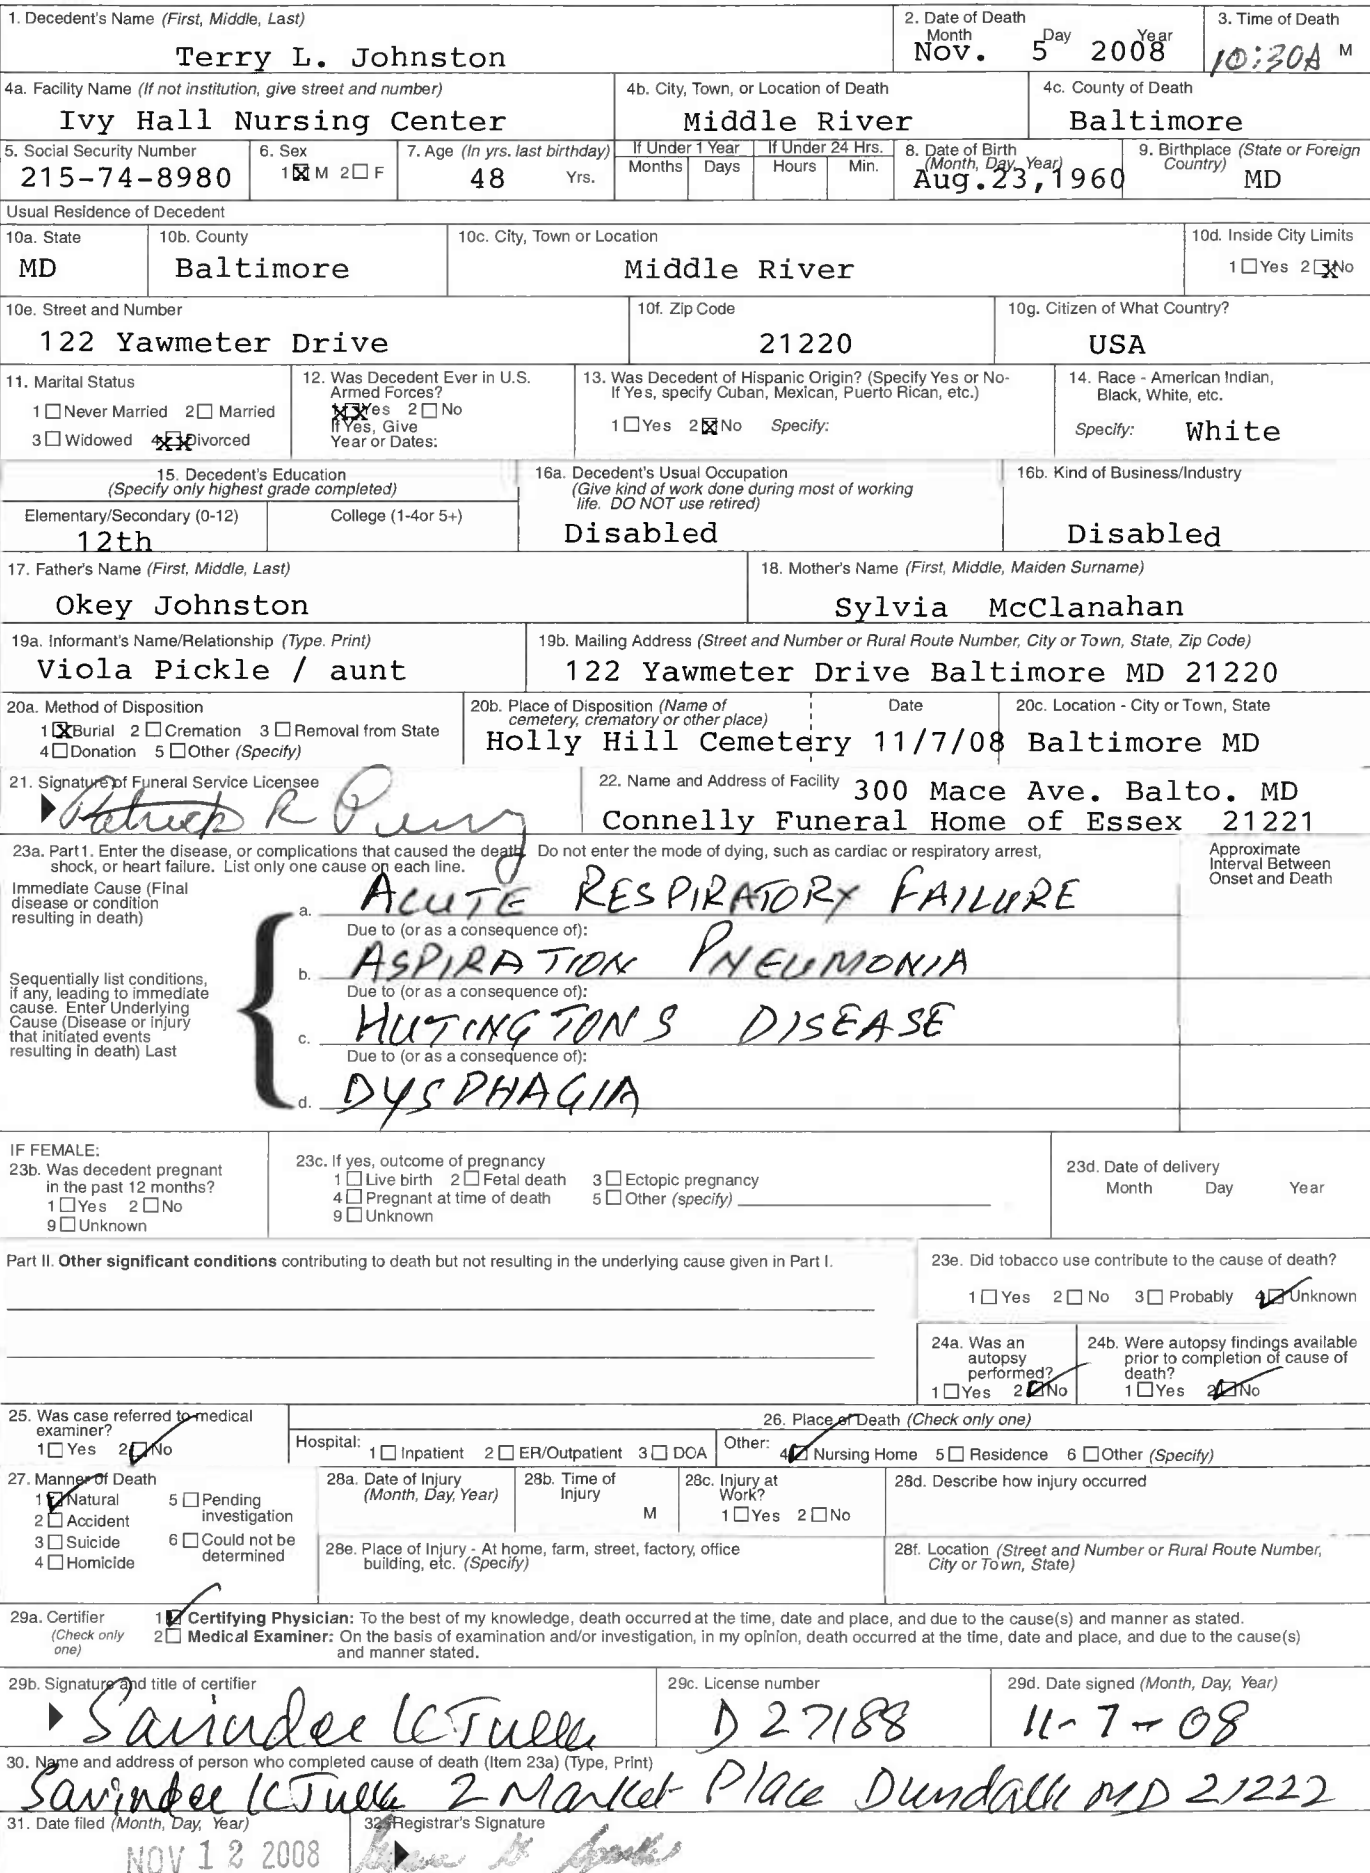 1. Decedent's Name (First, Middle, Last)
Terry L. Johnston
2. Date of Death
Month Day Year
Nov. 5 2008
3. Time of Death
10:30A M
4a. Facility Name (If not institution, give street and number)
Ivy Hall Nursing Center
4b. City, Town, or Location of Death
Middle River
4c. County of Death
Baltimore
5. Social Security Number
215-74-8980
6. Sex
1☒ M 2☐ F
7. Age (In yrs. last birthday)
48 Yrs.
If Under 1 Year
Months Days
If Under 24 Hrs.
Hours Min.
8. Date of Birth
(Month, Day, Year)
Aug.23,1960
9. Birthplace (State or Foreign
Country)
MD
Usual Residence of Decedent
10a. State
MD
10b. County
Baltimore
10c. City, Town or Location
Middle River
10d. Inside City Limits
1☐Yes 2☒No
10e. Street and Number
122 Yawmeter Drive
10f. Zip Code
21220
10g. Citizen of What Country?
USA
11. Marital Status
1☐Never Married 2☐Married
3☐Widowed 4☒Divorced
12. Was Decedent Ever in U.S.
Armed Forces?
1☒Yes 2☐No
If Yes, Give
Year or Dates:
13. Was Decedent of Hispanic Origin? (Specify Yes or No-
If Yes, specify Cuban, Mexican, Puerto Rican, etc.)
1☐Yes 2☒No Specify:
14. Race - American Indian,
Black, White, etc.
Specify: White
15. Decedent's Education
(Specify only highest grade completed)
Elementary/Secondary (0-12)
12th
College (1-4or 5+)
16a. Decedent's Usual Occupation
(Give kind of work done during most of working
life. DO NOT use retired)
Disabled
16b. Kind of Business/Industry
Disabled
17. Father's Name (First, Middle, Last)
Okey Johnston
18. Mother's Name (First, Middle, Maiden Surname)
Sylvia McClanahan
19a. Informant's Name/Relationship (Type. Print)
Viola Pickle / aunt
19b. Mailing Address (Street and Number or Rural Route Number, City or Town, State, Zip Code)
122 Yawmeter Drive Baltimore MD 21220
20a. Method of Disposition
1☒Burial 2☐Cremation 3☐Removal from State
4☐Donation 5☐Other (Specify)
20b. Place of Disposition (Name of
cemetery, crematory or other place)
Holly Hill Cemetery
Date
11/7/08
20c. Location - City or Town, State
Baltimore MD
21. Signature of Funeral Service Licensee
Patrick R
22. Name and Address of Facility 300 Mace Ave. Balto. MD
Connelly Funeral Home of Essex 21221
23a. Part1. Enter the disease, or complications that caused the death. Do not enter the mode of dying, such as cardiac or respiratory arrest,
shock, or heart failure. List only one cause on each line.
Approximate
Interval Between
Onset and Death
Immediate Cause (Final
disease or condition
resulting in death)
a. ACUTE RESPIRATORY FAILURE
Due to (or as a consequence of):
b. ASPIRATION PNEUMONIA
Sequentially list conditions,
if any, leading to immediate
cause. Enter Underlying
Cause (Disease or injury
that initiated events
resulting in death) Last
Due to (or as a consequence of):
c. HUTINGTONS DISEASE
Due to (or as a consequence of):
d. DYSPHAGIA
IF FEMALE:
23b. Was decedent pregnant
in the past 12 months?
1☐Yes 2☐No
9☐Unknown
23c. If yes, outcome of pregnancy
1☐Live birth 2☐Fetal death 3☐Ectopic pregnancy
4☐Pregnant at time of death 5☐Other (specify)
9☐Unknown
23d. Date of delivery
Month Day Year
Part II. Other significant conditions contributing to death but not resulting in the underlying cause given in Part I.
23e. Did tobacco use contribute to the cause of death?
1☐Yes 2☐No 3☐Probably 4☑Unknown
24a. Was an
autopsy
performed?
1☐Yes 2☑No
24b. Were autopsy findings available
prior to completion of cause of
death?
1☐Yes 2☑No
25. Was case referred to medical
examiner?
1☐Yes 2☑No
26. Place of Death (Check only one)
Hospital: 1☐Inpatient 2☐ER/Outpatient 3☐DOA
Other: 4☑Nursing Home 5☐Residence 6☐Other (Specify)
27. Manner of Death
1☑Natural
2☐Accident
3☐Suicide
4☐Homicide
5☐Pending
investigation
6☐Could not be
determined
28a. Date of Injury
(Month, Day, Year)
28b. Time of
Injury
M
28c. Injury at
Work?
1☐Yes 2☐No
28d. Describe how injury occurred
28e. Place of Injury - At home, farm, street, factory, office
building, etc. (Specify)
28f. Location (Street and Number or Rural Route Number,
City or Town, State)
29a. Certifier
(Check only
one)
1☑Certifying Physician: To the best of my knowledge, death occurred at the time, date and place, and due to the cause(s) and manner as stated.
2☐Medical Examiner: On the basis of examination and/or investigation, in my opinion, death occurred at the time, date and place, and due to the cause(s)
and manner stated.
29b. Signature and title of certifier
29c. License number
D 27188
29d. Date signed (Month, Day, Year)
11-7-08
30. Name and address of person who completed cause of death (Item 23a) (Type, Print)
2 Market Place Dundalk MD 21222
31. Date filed (Month, Day, Year)
NOV 12 2008
32. Registrar's Signature